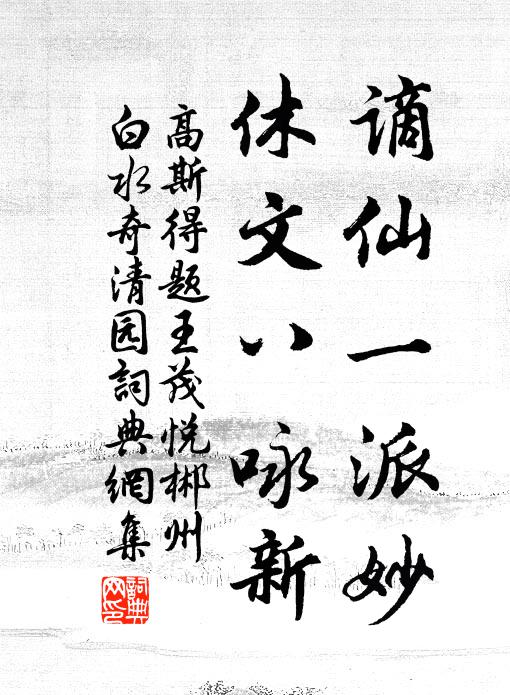 谪仙一派妙
休文八咏新
高斯得题王茂悦郴州
白水奇清园詞典網集
詞典網印